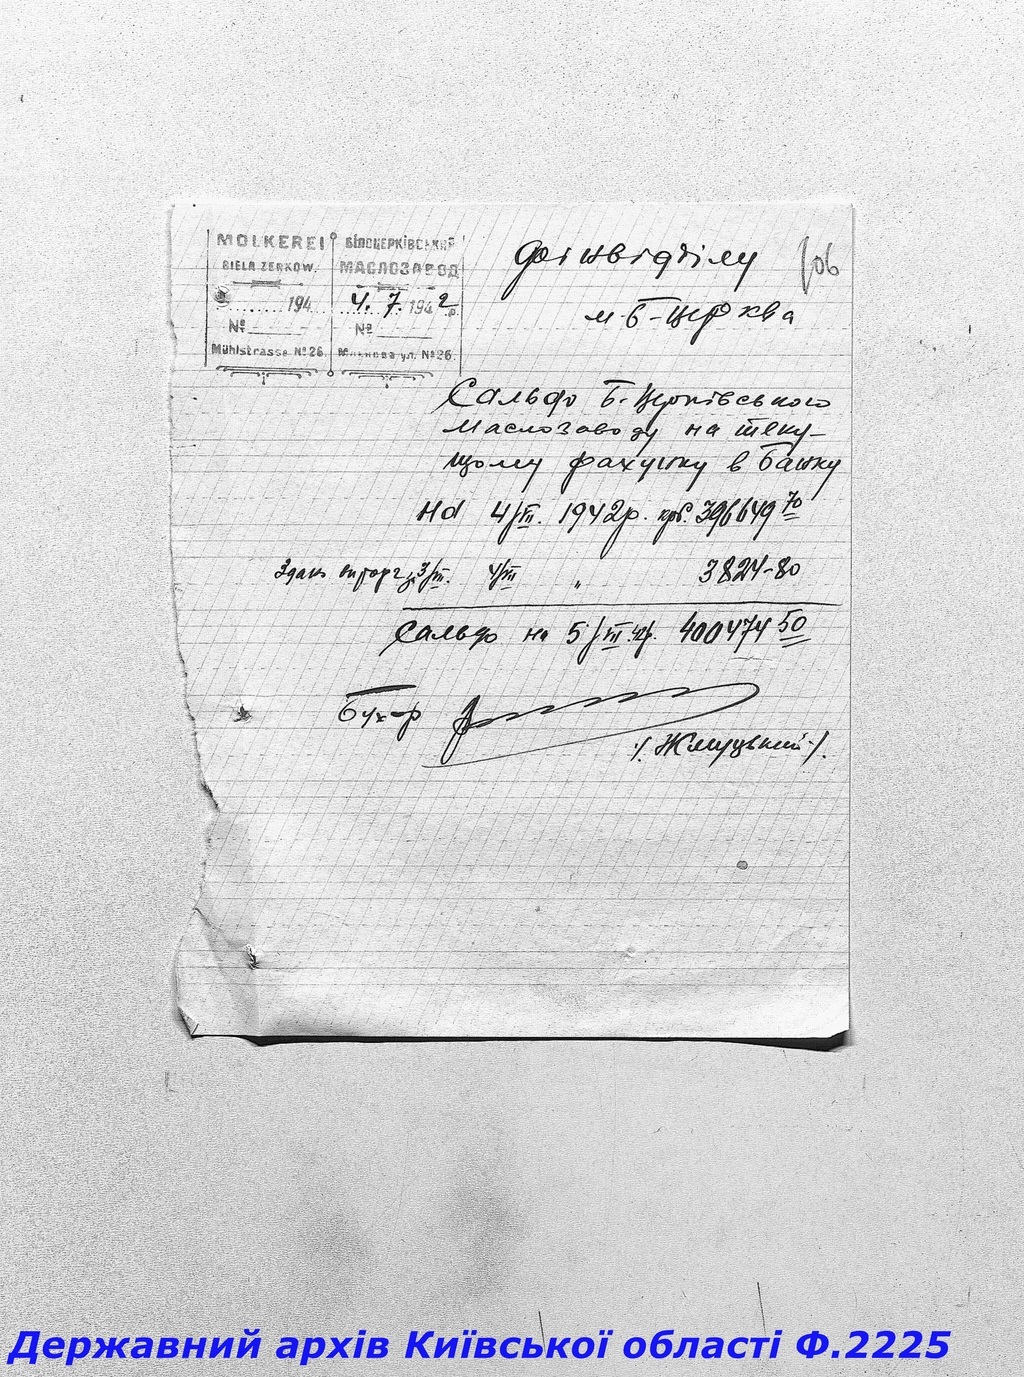 MOLKEREI
BIELA ZERKOW.
194
№
Mühlstrasse №26.
БІЛОЦЕРКІВСЬКИЙ
МАСЛОЗАВОД
4. 7. 1942 р.
№
ул. №26.
106
Фінвідділу
м Б-Церква
Сальдо Б. Церківського
Маслозаводу на теку-
щому рахунку в Банку
На 4/VII. 1942р. крб. 396649 70
Здано виторг з 3/VII. 4/VII " 3824-80
Сальдо на 5/VII 42р. 400474 50
Бух-р
/. Жмуцький ./.
Державний архів Київської області Ф.2225